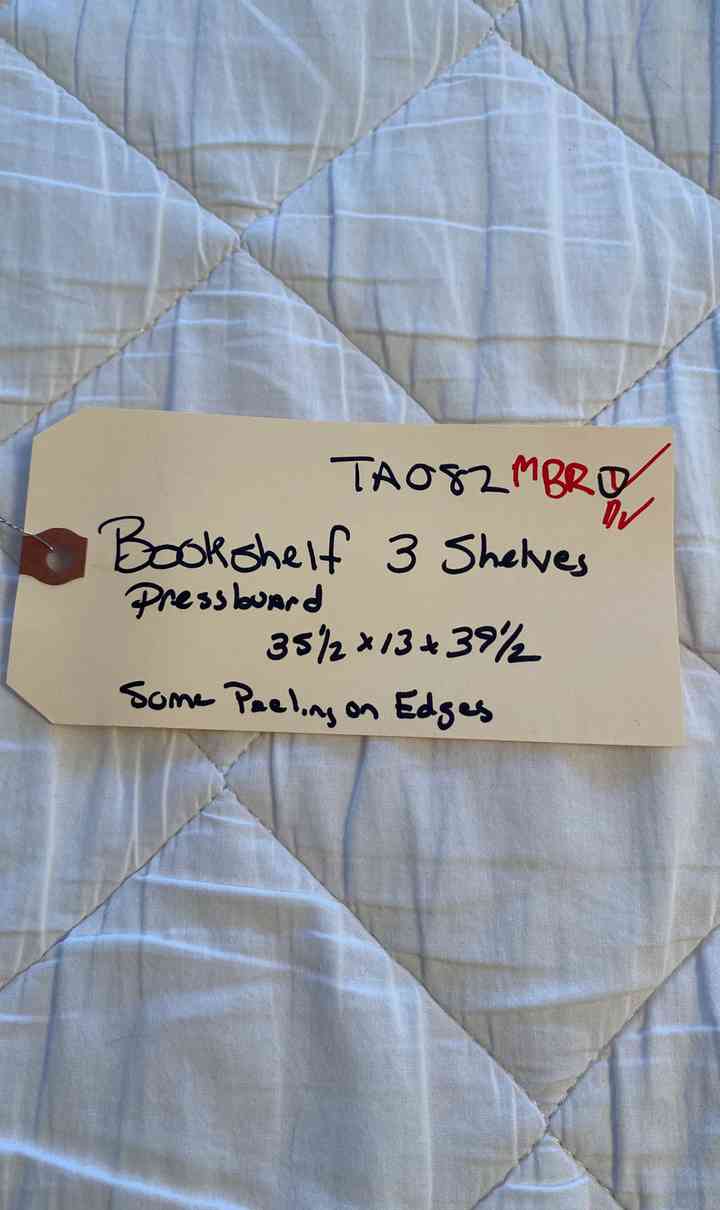 TA082 MBR
Bookshelf 3 Shelves
Pressboard
35 1/2 x 13 x 39 1/2
Some Peeling on Edges